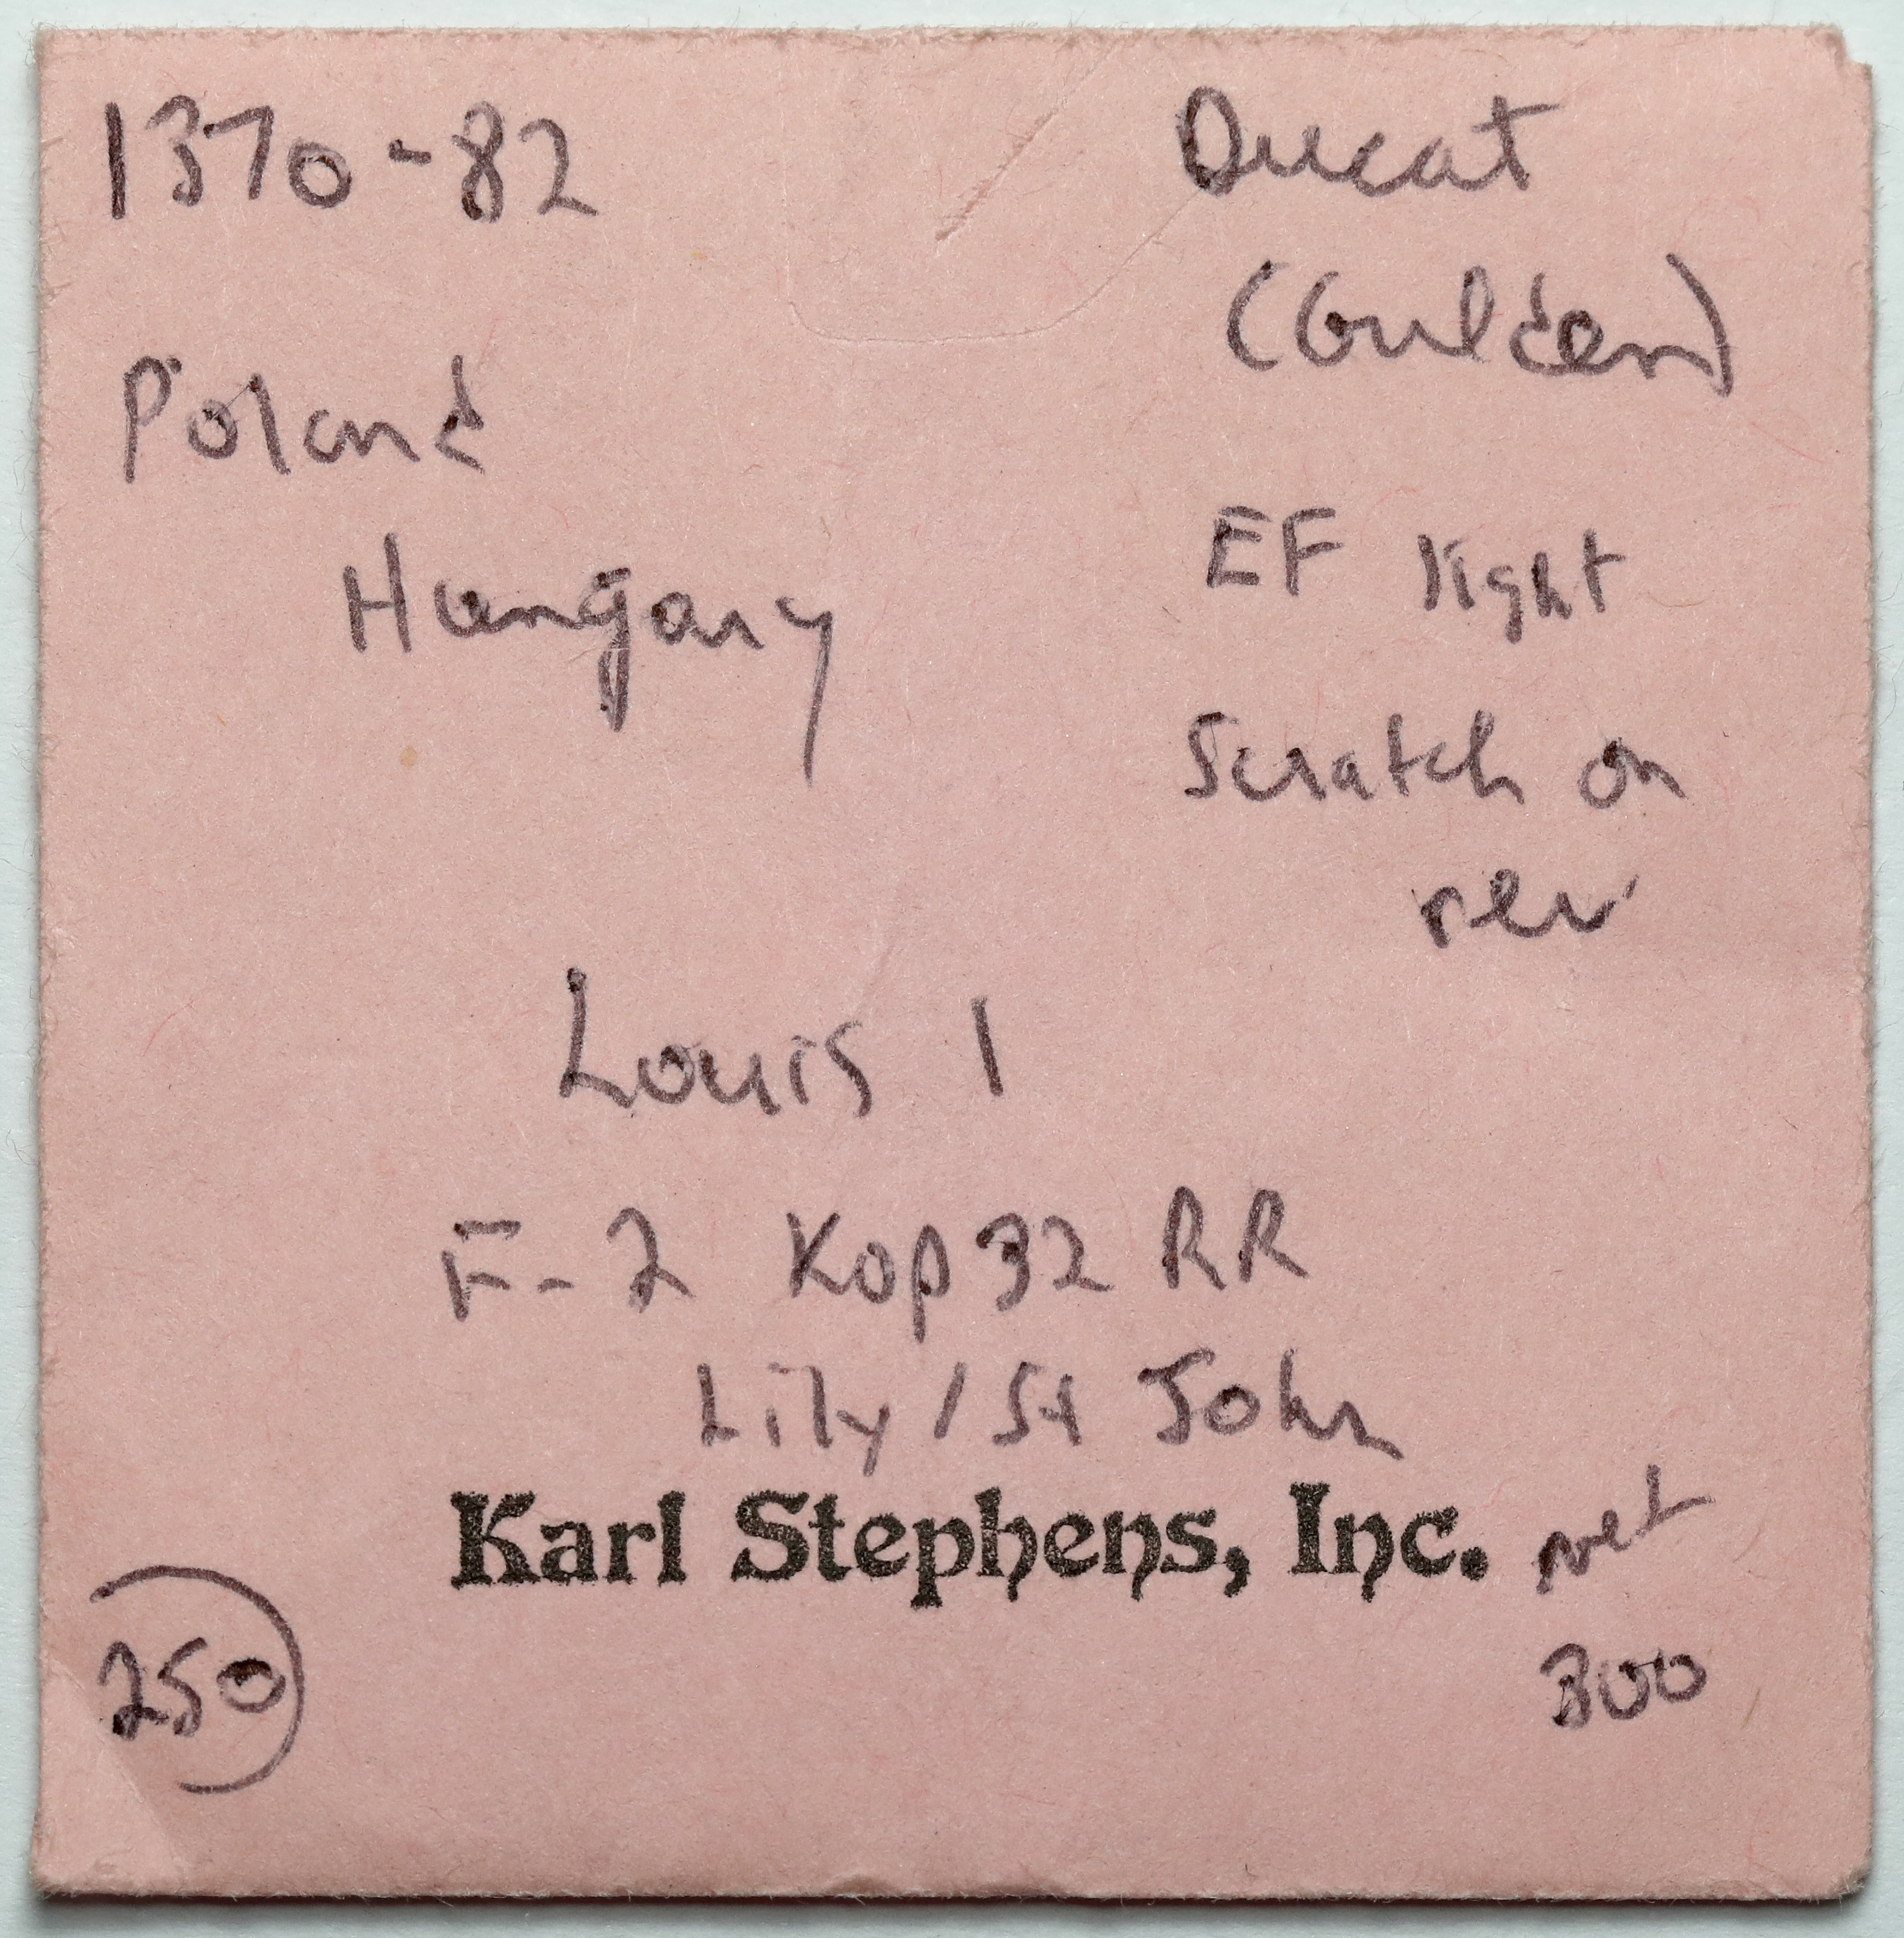 1370-82 Ducat
(Gulden)
Poland
Hungary
EF light
Scratch on
rev
Louis 1
F-2 Kop 32 RR
Lily / St John
Karl Stephens, Inc. net
250 300